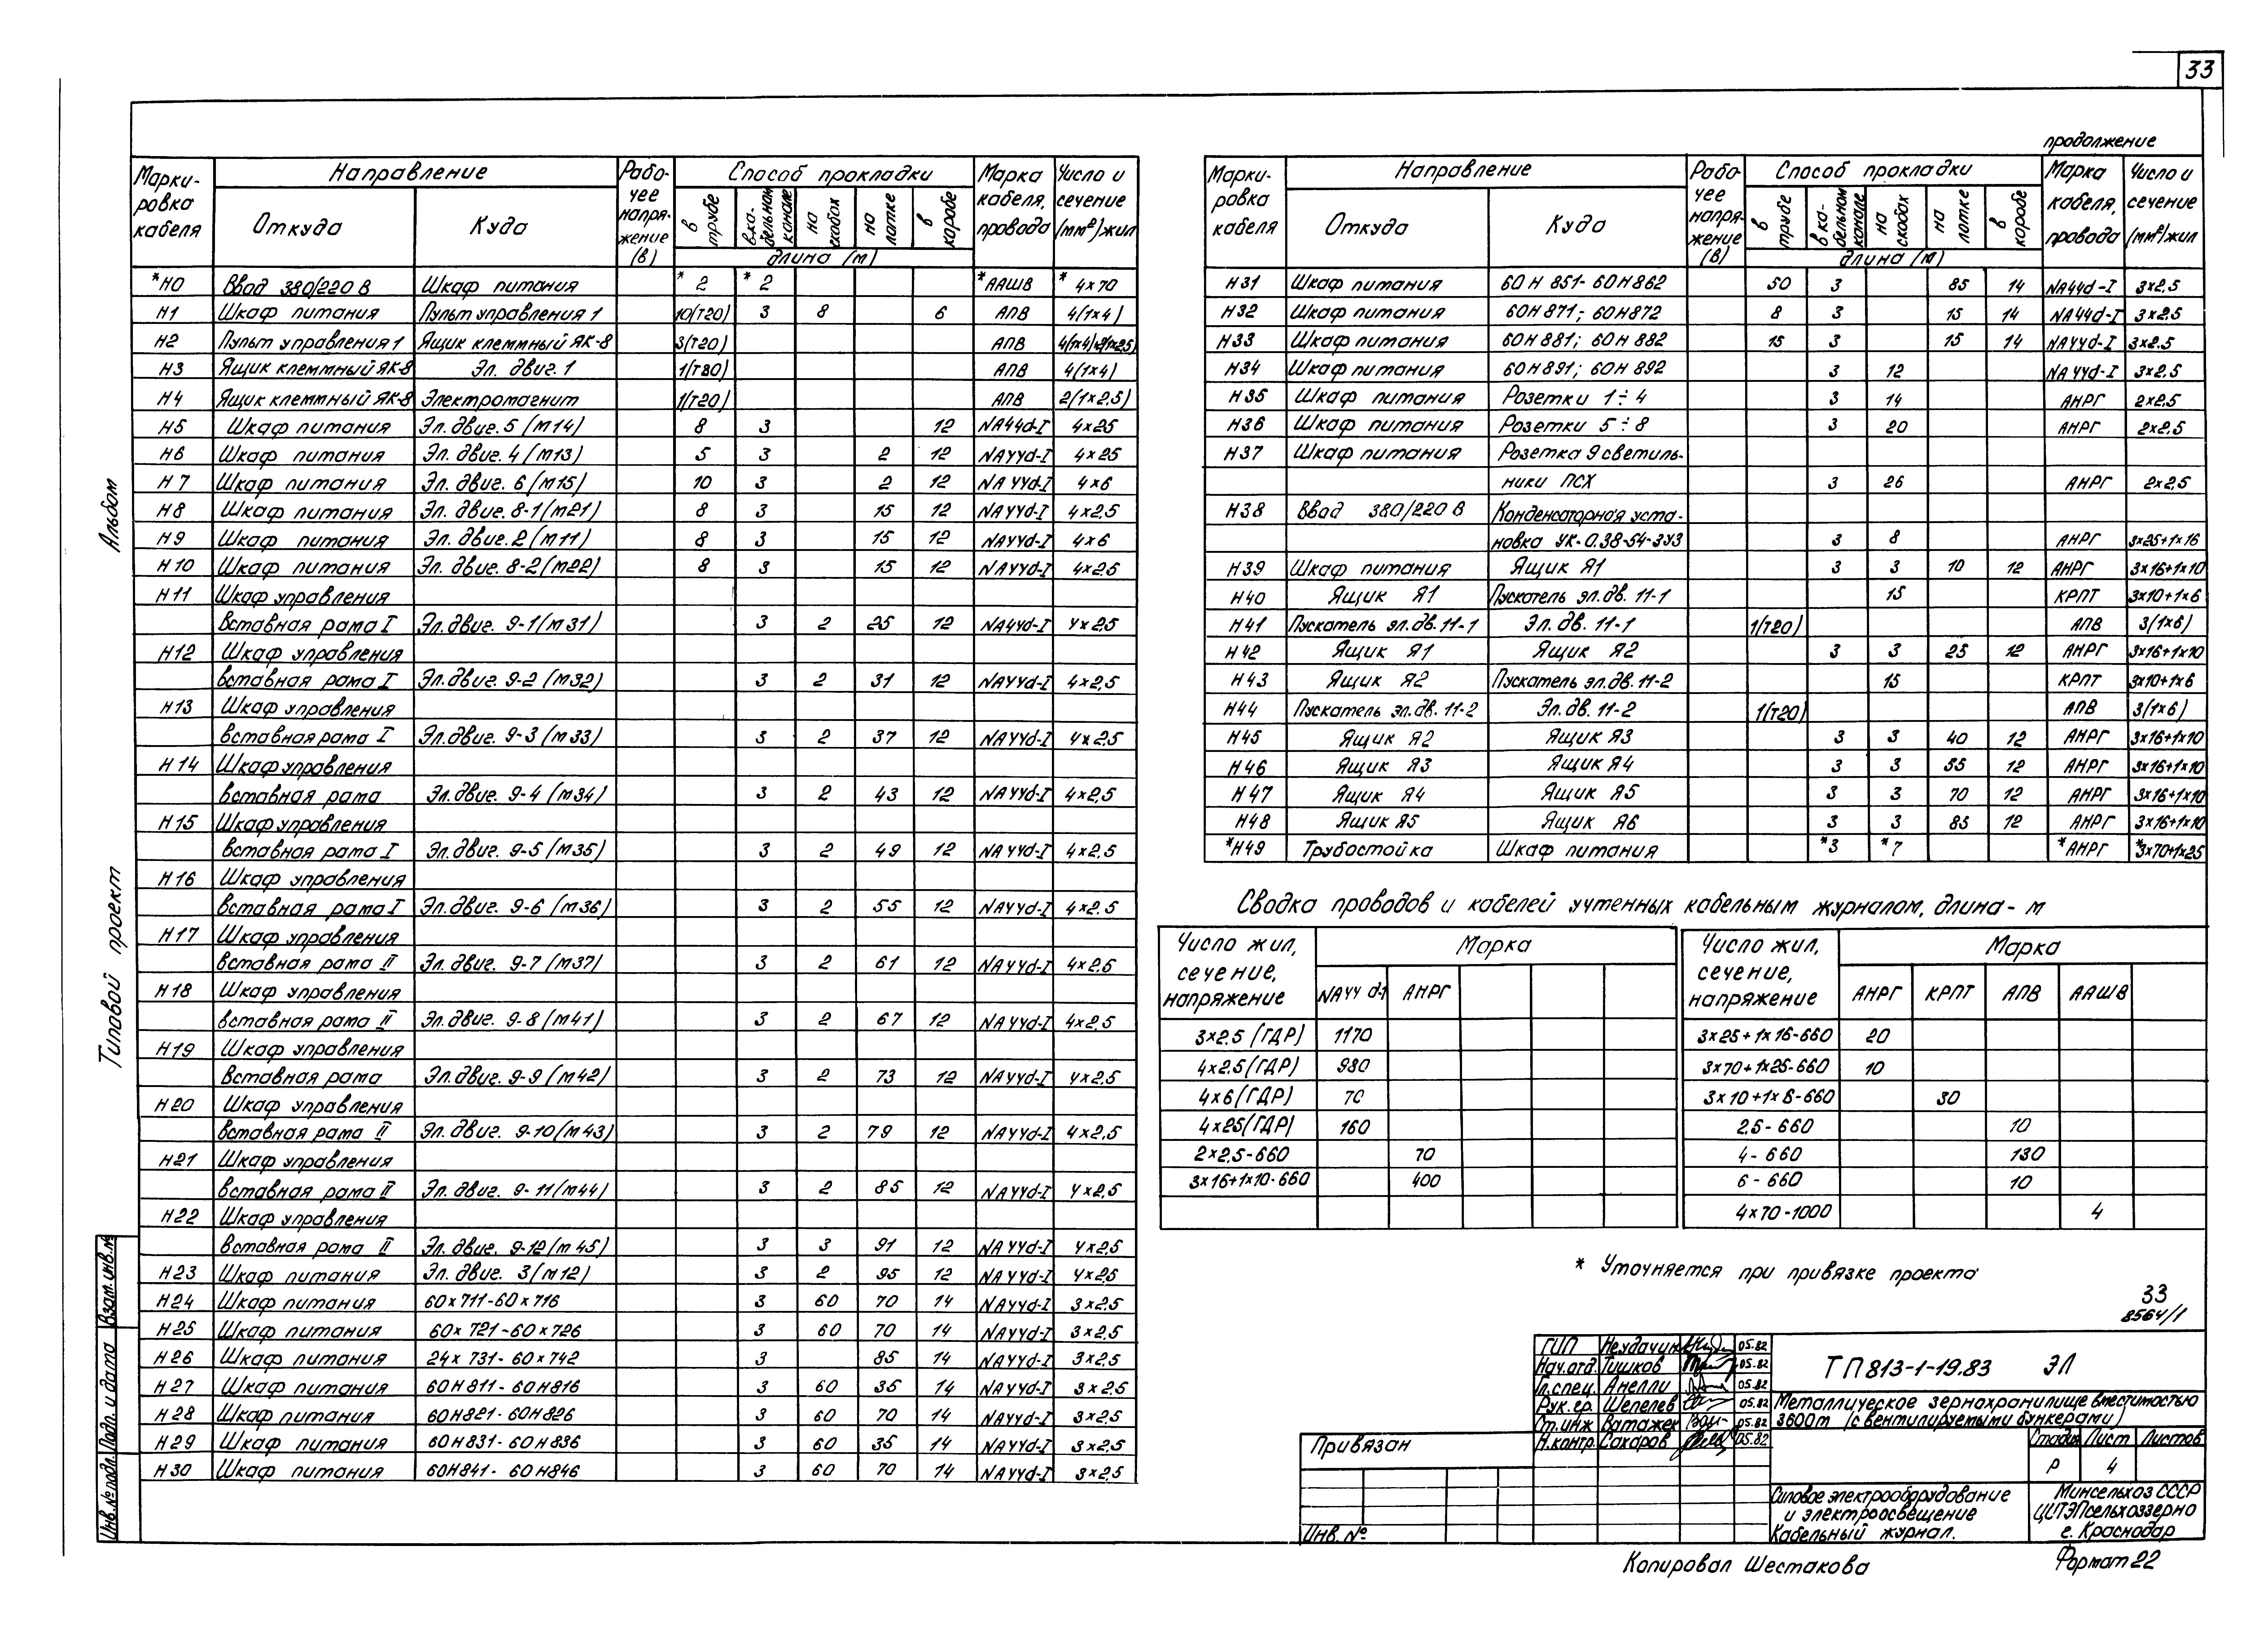 33
продолжение
Марки-ровка кабеля | Направление | Рабо-чее напря-жение (В) | Способ прокладки | Марка кабеля, провода | Число и сечение (мм²) жил
Откуда | Куда | в трубе | в ка-бельном канале | на скобах | на лотке | в коробе
длина (м)
*Н0 Ввод 380/220 В Шкаф питания *2 *2 *ААШВ *4×70
Н1 Шкаф питания Пульт управления 1 10(Т20) 3 8 6 АПВ 4(1×4)
Н2 Пульт управления 1 Ящик клеммный ЯК-8 3(Т20) АПВ 4(1×4)+2(1×2,5)
Н3 Ящик клеммный ЯК-8 Эл. двиг. 1 1(Т20) АПВ 4(1×4)
Н4 Ящик клеммный ЯК-8 Электромагнит 1(Т20) АПВ 2(1×2,5)
Н5 Шкаф питания Эл. двиг. 5 (м14) 8 3 12 NAYYd-I 4×25
Н6 Шкаф питания Эл. двиг. 4 (м13) 5 3 2 12 NAYYd-I 4×25
Н7 Шкаф питания Эл. двиг. 6 (м15) 10 3 2 12 NAYYd-I 4×6
Н8 Шкаф питания Эл. двиг. 8-1 (м21) 8 3 15 12 NAYYd-I 4×2,5
Н9 Шкаф питания Эл. двиг. 2 (м11) 8 3 15 12 NAYYd-I 4×6
Н10 Шкаф питания Эл. двиг. 8-2 (м22) 8 3 15 12 NAYYd-I 4×2,5
Н11 Шкаф управления
вставная рама I Эл. двиг. 9-1 (м31) 3 2 25 12 NAYYd-I 4×2,5
Н12 Шкаф управления
вставная рама I Эл. двиг. 9-2 (м32) 3 2 31 12 NAYYd-I 4×2,5
Н13 Шкаф управления
вставная рама I Эл. двиг. 9-3 (м33) 3 2 37 12 NAYYd-I 4×2,5
Н14 Шкаф управления
вставная рама Эл. двиг. 9-4 (м34) 3 2 43 12 NAYYd-I 4×2,5
Н15 Шкаф управления
вставная рама I Эл. двиг. 9-5 (м35) 3 2 49 12 NAYYd-I 4×2,5
Н16 Шкаф управления
вставная рама I Эл. двиг. 9-6 (м36) 3 2 55 12 NAYYd-I 4×2,5
Н17 Шкаф управления
вставная рама II Эл. двиг. 9-7 (м37) 3 2 61 12 NAYYd-I 4×2,5
Н18 Шкаф управления
вставная рама II Эл. двиг. 9-8 (м41) 3 2 67 12 NAYYd-I 4×2,5
Н19 Шкаф управления
вставная рама Эл. двиг. 9-9 (м42) 3 2 73 12 NAYYd-I 4×2,5
Н20 Шкаф управления
вставная рама II Эл. двиг. 9-10 (м43) 3 2 79 12 NAYYd-I 4×2,5
Н21 Шкаф управления
вставная рама II Эл. двиг. 9-11 (м44) 3 2 85 12 NAYYd-I 4×2,5
Н22 Шкаф управления
вставная рама II Эл. двиг. 9-12 (м45) 3 3 91 12 NAYYd-I 4×2,5
Н23 Шкаф питания Эл. двиг. 3 (м12) 3 2 95 12 NAYYd-I 4×2,5
Н24 Шкаф питания 60×711-60×716 3 60 70 14 NAYYd-I 3×2,5
Н25 Шкаф питания 60×721-60×726 3 60 70 14 NAYYd-I 3×2,5
Н26 Шкаф питания 24×731-60×742 3 85 14 NAYYd-I 3×2,5
Н27 Шкаф питания 60Н811-60Н816 3 60 35 14 NAYYd-I 3×2,5
Н28 Шкаф питания 60Н821-60Н826 3 60 70 14 NAYYd-I 3×2,5
Н29 Шкаф питания 60Н831-60Н836 3 60 35 14 NAYYd-I 3×2,5
Н30 Шкаф питания 60Н841-60Н846 3 60 70 14 NAYYd-I 3×2,5
Марки-ровка кабеля | Направление | Рабо-чее напря-жение (В) | Способ прокладки | Марка кабеля, провода | Число и сечение (мм²) жил
Откуда | Куда | в трубе | в ка-бельном канале | на скобах | на лотке | в коробе
длина (м)
Н31 Шкаф питания 60Н851-60Н862 50 3 85 14 NAYYd-I 3×2,5
Н32 Шкаф питания 60Н871; 60Н872 8 3 15 14 NAYYd-I 3×2,5
Н33 Шкаф питания 60Н881; 60Н882 15 3 15 14 NAYYd-I 3×2,5
Н34 Шкаф питания 60Н891; 60Н892 3 12 NAYYd-I 3×2,5
Н35 Шкаф питания Розетки 1÷4 3 14 АНРГ 2×2,5
Н36 Шкаф питания Розетки 5÷8 3 20 АНРГ 2×2,5
Н37 Шкаф питания Розетка 9 светиль-
ники ПСХ 3 26 АНРГ 2×2,5
Н38 Ввод 380/220 В Конденсаторная уста-
новка УК-0.38-54-3У3 3 8 АНРГ 3×25+1×16
Н39 Шкаф питания Ящик Я1 3 3 10 12 АНРГ 3×16+1×10
Н40 Ящик Я1 Пускатель эл.дв. 11-1 15 КРПТ 3×10+1×6
Н41 Пускатель эл.дв. 11-1 Эл. дв. 11-1 1(Т20) АПВ 3(1×6)
Н42 Ящик Я1 Ящик Я2 3 3 25 12 АНРГ 3×16+1×10
Н43 Ящик Я2 Пускатель эл.дв. 11-2 15 КРПТ 3×10+1×6
Н44 Пускатель эл.дв. 11-2 Эл. дв. 11-2 1(Т20) АПВ 3(1×6)
Н45 Ящик Я2 Ящик Я3 3 3 40 12 АНРГ 3×16+1×10
Н46 Ящик Я3 Ящик Я4 3 3 55 12 АНРГ 3×16+1×10
Н47 Ящик Я4 Ящик Я5 3 3 70 12 АНРГ 3×16+1×10
Н48 Ящик Я5 Ящик Я6 3 3 85 12 АНРГ 3×16+1×10
*Н49 Трубостойка Шкаф питания *3 *7 *АНРГ *3×70+1×25
Сводка проводов и кабелей учтенных кабельным журналом, длина - м
Число жил, сечение, напряжение | Марка
NAYY d-I | АНРГ
3×2,5 (ГДР) 1170
4×2,5 (ГДР) 980
4×6 (ГДР) 70
4×25 (ГДР) 160
2×2,5-660 70
3×16+1×10-660 400
Число жил, сечение, напряжение | Марка
АНРГ | КРПТ | АПВ | ААШВ
3×25+1×16-660 20
3×70+1×25-660 10
3×10+1×6-660 30
2,5-660 10
4-660 130
6-660 10
4×70-1000 4
* Уточняется при привязке проекта
33
8564/1
ГИП Неудачин 05.82
Нач.отд. Тишков 05.82
Гл.спец. Анелли 05.82
Рук.гр. Шепелев 05.82
Ст.инж Ватажек 05.82
Н.контр. Сахаров 05.82
ТП 813-1-19.83 ЭЛ
Металлическое зернохранилище вместимостью
3600т (с вентилируемыми бункерами)
Стадия Лист Листов
Р 4
Силовое электрооборудование
и электроосвещение
Кабельный журнал.
Минсельхоз СССР
ЦИТЭПсельхоззерно
г. Краснодар
Привязан
Инв. №
Копировал Шестакова
Формат 22
Альбом
Типовой проект
Взам. инв. №
Подп. и дата
Инв. № подл.